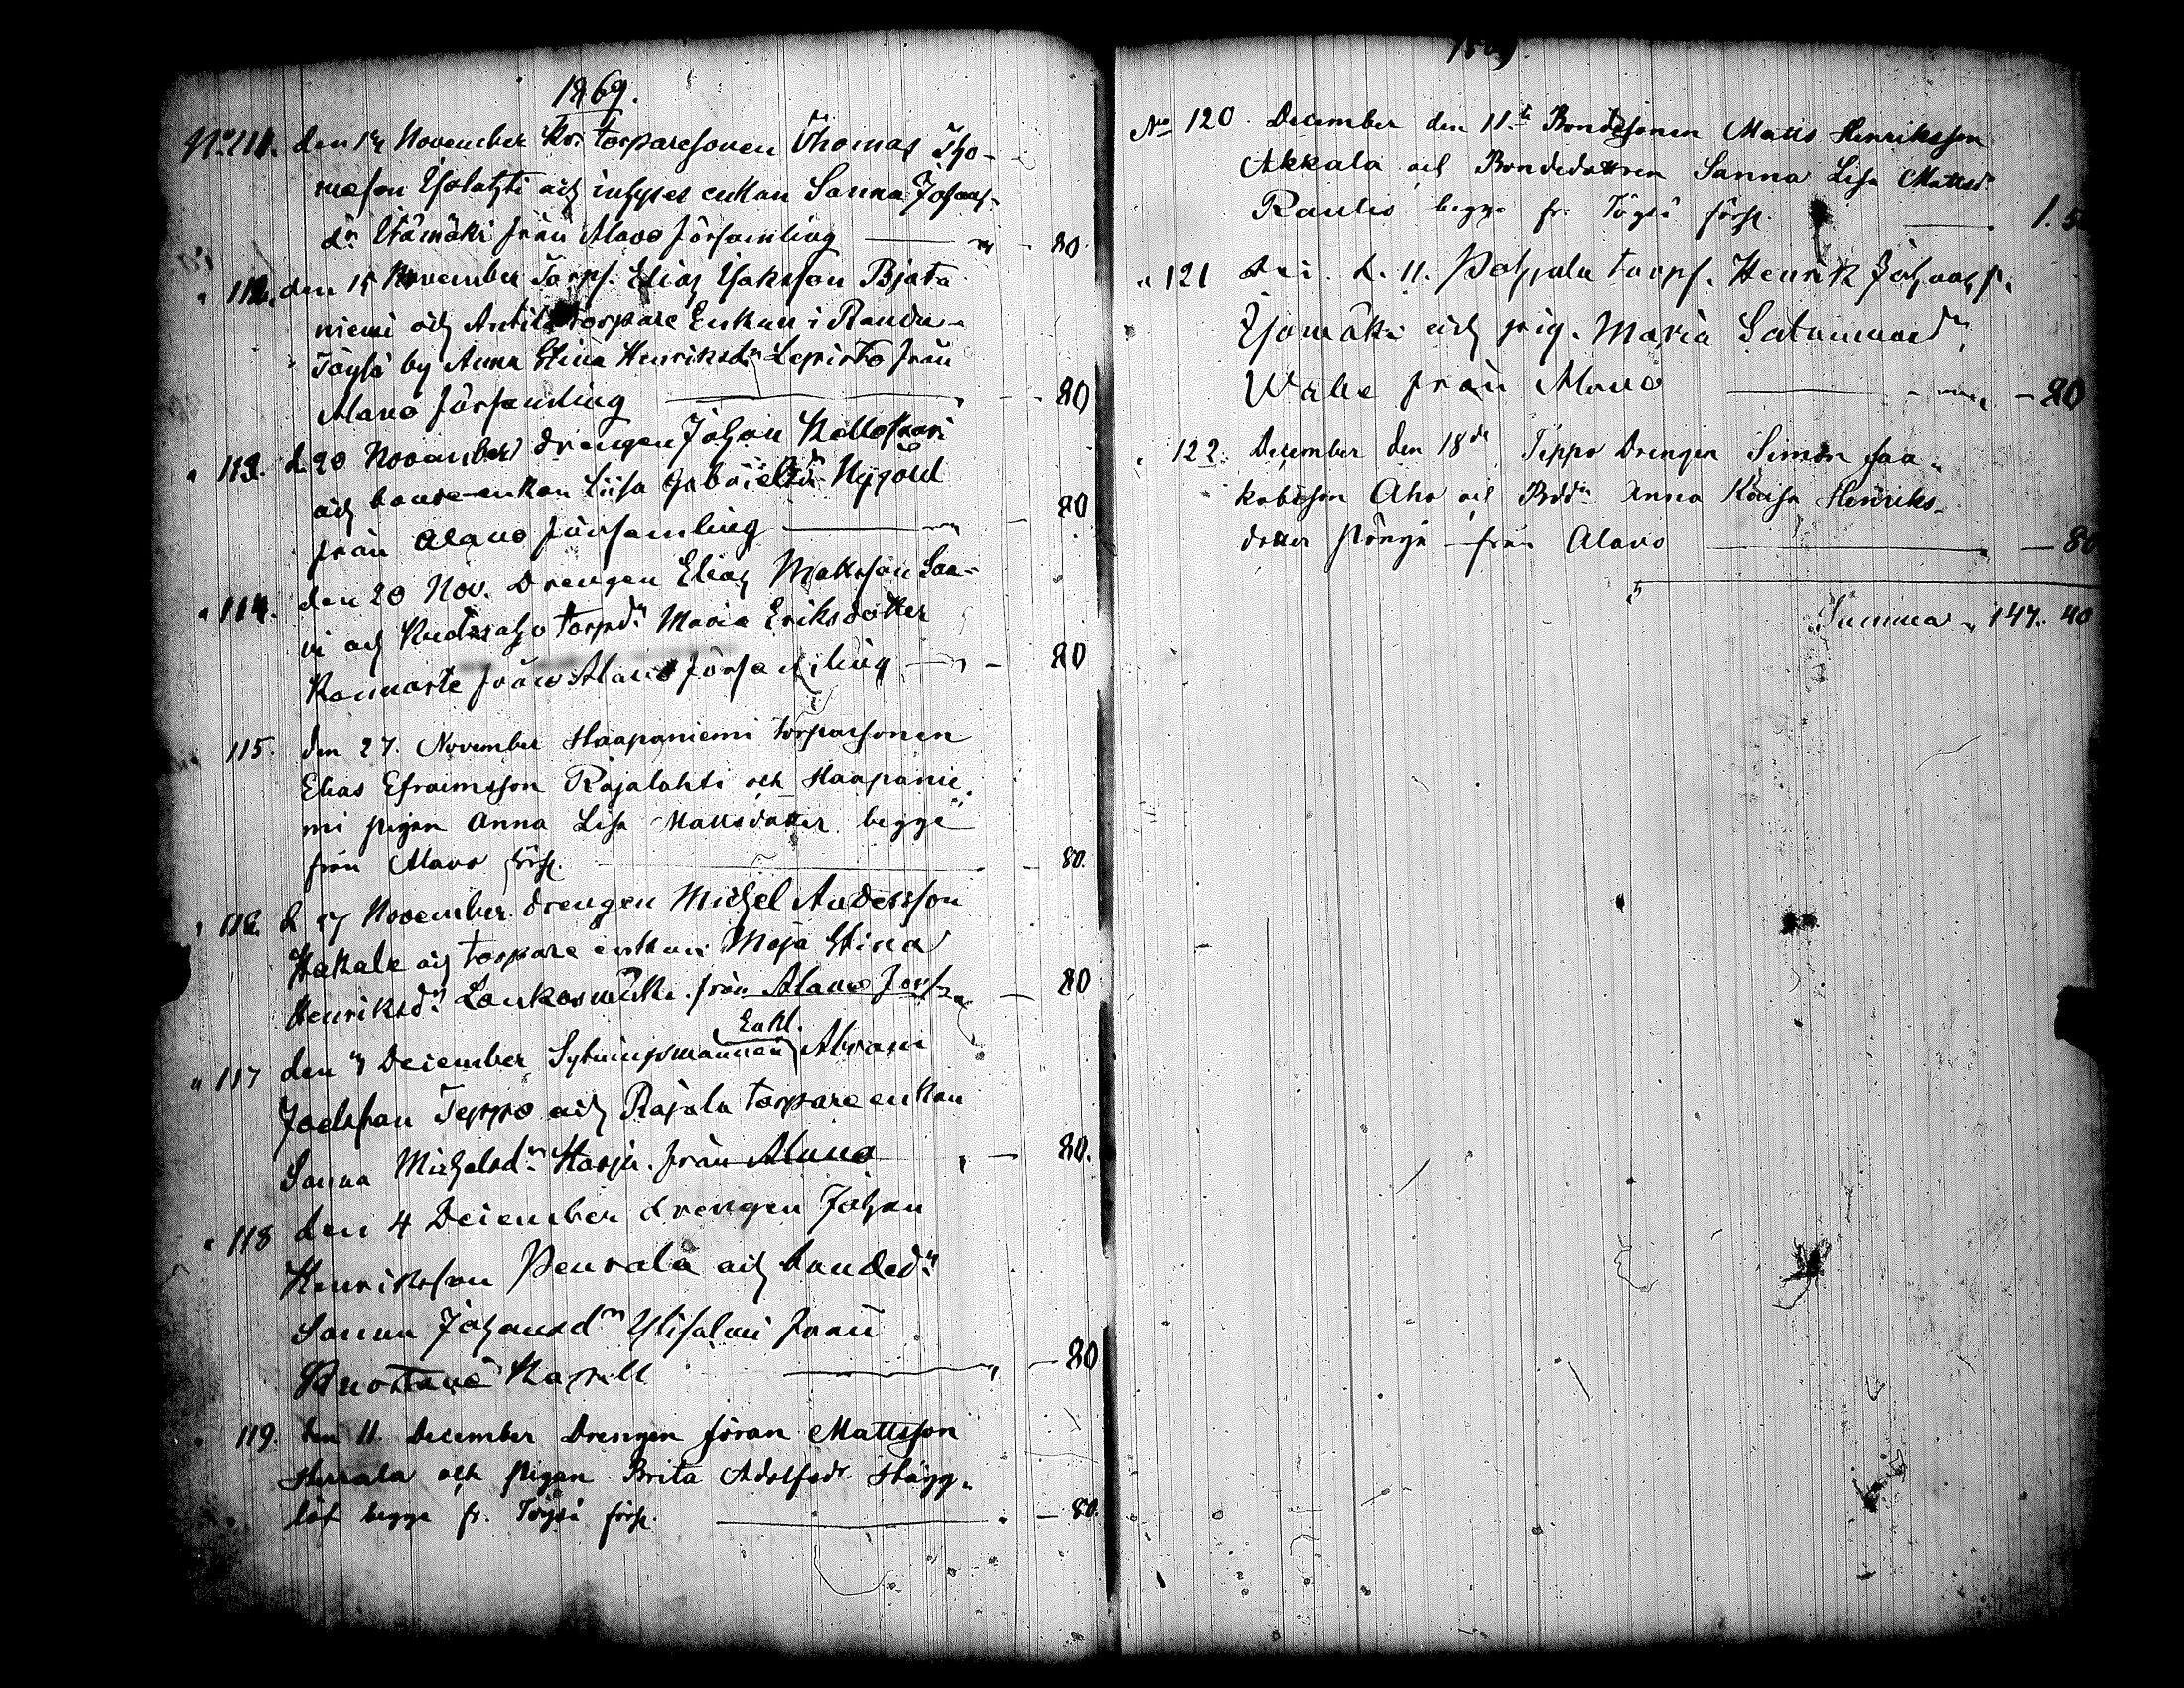 1869.
No 111. den 14 November Kr. torparesonen Thomas Tho-
masson Ysolahti och inhyses enkan Sanna Johans-
dr Ytämäki från Alavo församling — 80.
" 112. den 15 November Torps. Elias Isaksson Pjata
niemi och Antila torpare Enkan i Randa-
Töysä by Anna Stina Henriksdr Lepistö från
Alavo församling — 80
" 113. d. 20 November drengen Johan Kellokoski
och bonde-enkan Liisa Gabrielsdr Nygård
från Alavo församling — 80
" 114. den 20 Nov. Drengen Elias Mattsson Saa-
ri och torpdr Maria Eriksdotter
Rannaste från Alavo församling — 80
115. den 27. November Haapaniemi torparsonen
Elias Efraimsson Rajalahti och Haapanie-
mi pigan Anna Lisa Mattsdotter begge
från Alavo förs. — 80.
" 116. d 27 November drengen Michel Andersson
Hakala och torpare enkan Maja Stina
Henriksdr Loukasmäki från Alavo förs. — 80
Enkl.
" 117 den 4 December Sytningsmannen Abram
Joelsson Teppo och Rajala torpare enkan
Sanna Michelsdr Harju från Alavo — 80.
" 118 den 4 December drengen Johan
Henriksson Peurala och bondedr
Sanna Johansdr Ylisalmi från
Kapell — 80
119. den 11 December Drengen Jöran Mattsson
Herrala och pigan Brita Adolfsdr Hägg-
löf begge fr. Töysä förs. — 80.
1869.
No 120. December den 11te Bondesonen Matts Henriksson
Akkala och Bondedottren Sanna Lisa Mattsdr
Rautio begge fr. Töysä förs. — 1. 5
" 121 d. 11. Pohjala torps. Henrik Johans s.
Ojamäki och pig. Maria Salomonsdr
från Alavo — 80
" 122. December den 18de Teppo Drengen Simon Jaa-
kobsson Aho och Bddr Anna Kaisa Henriks-
dotter Pönjä från Alavo — 80
Summa " 147. 40